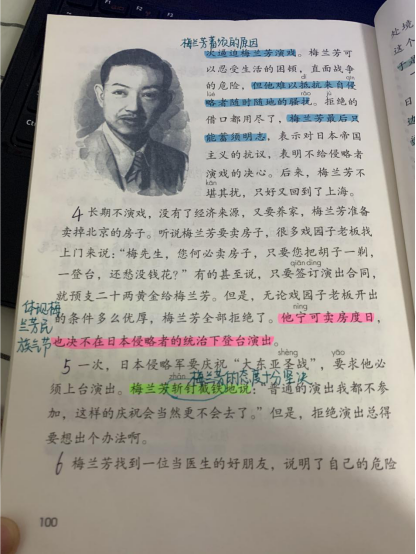 梅兰芳蓄须的原因
次逼迫梅兰芳演戏。梅兰芳可
以忍受生活的困顿，直面战争
dǐ qīn
的危险，但他难以抵抗来自侵
lüè rǎo jù
略者随时随地的骚扰。拒绝的
借口都用尽了，梅兰芳最后只
能蓄须明志，表示对日本帝国
主义的抗议，表明不给侵略者
演戏的决心。后来，梅兰芳不
kān
堪其扰，只好又回到了上海。
4 长期不演戏，没有了经济来源，又要养家，梅兰芳准备
卖掉北京的房子。听说梅兰芳要卖房子，很多戏园子老板找
上门来说：“梅先生，您何必卖房子，只要您把胡子一剃，
qiān dìng
一登台，还愁没钱花？”有的甚至说，只要签订演出合同，
就预支二十两黄金给梅兰芳。但是，无论戏园子老板开出
nìng
的条件多么优厚，梅兰芳全部拒绝了。他宁可卖房度日，
体现梅
兰芳民
族气节
也决不在日本侵略者的统治下登台演出。
shèng yāo
5 一次，日本侵略军要庆祝“大东亚圣战”，要求他必
须上台演出。梅兰芳斩钉截铁地说：“普通的演出我都不参
zhǎn
梅兰芳的态度十分坚决
加，这样的庆祝会当然更不会去了。”但是，拒绝演出总得
要想出个办法啊。
6 梅兰芳找到一位当医生的好朋友，说明了自己的危险
100